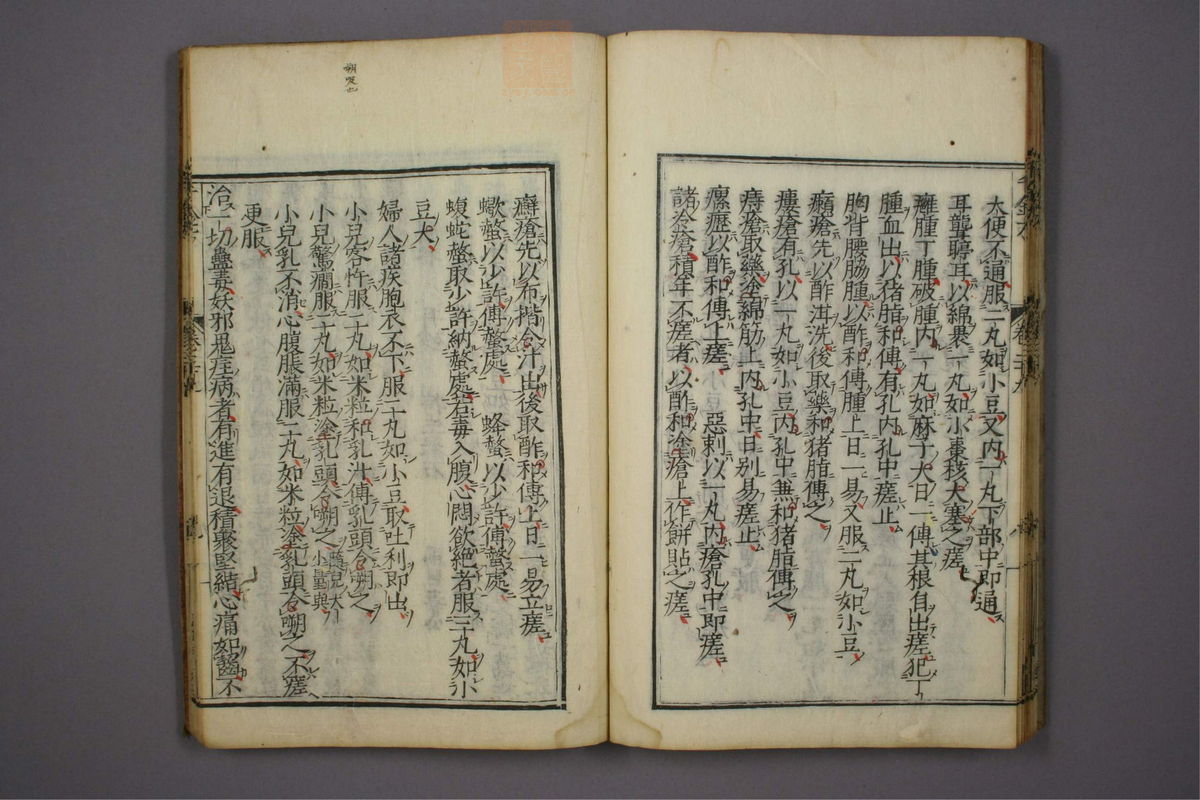 大便不通服二丸如小豆又内一丸下部中即通
耳聾聤耳以綿裹一丸如小棗核大塞之瘥
癰腫丁腫破腫内一丸如麻子大日一傅其根自出瘥犯丁
腫血出以猪脂和傅有孔内孔中瘥止
胸背腰脇腫以酢和傅腫上日一易又服二丸如小豆
癩瘡先以酢泔洗後取藥和猪脂傅之
瘻瘡有孔以一丸如小豆内孔中兼和猪脂傅之
痔瘡取藥塗綿筋上内孔中日別易瘥止
瘰癧以酢和傅上瘥 惡刺以一丸内瘡孔中即瘥
諸瘡積年不瘥者以酢和塗瘡上作餅貼之瘥
癬瘡先以布揩令汁出後取酢和傅上日一易立瘥
蠍螫以少許傅螫處 蜂螫以少許傅螫處
蝮蛇螫取少許納螫處若毒入腹心悶欲絶者服三丸如小
豆大
婦人諸疾胞衣不下服二丸如小豆取吐利即出
小兒客忤服二丸如米粒和乳汁傅乳頭令嗍之
小兒驚癇服一丸如米粒塗乳頭令嗍之看兒大小量與
小兒乳不消心腹脹滿服一丸如米粒塗乳頭令嗍之不瘥
更服
治一切蠱毒妖邪鬼疰病者有進有退積聚堅結心痛如齧不
嗍吸也